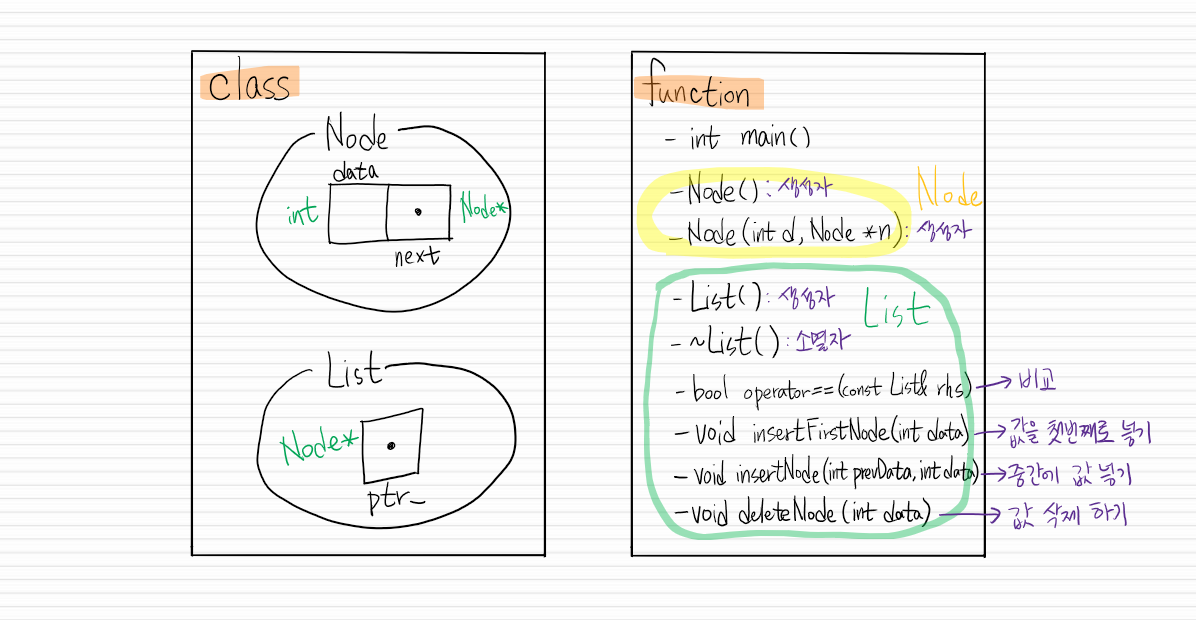 class
Node
data
int
Node*
next
List
Node*
ptr_
function
- int main()
- Node() : 생성자
Node
- Node(int d, Node *n) : 생성자
- List() : 생성자
List
- ~List() : 소멸자
- bool operator==(const List& rhs) → 비교
- void insertFirstNode(int data) → 값을 첫번째로 넣기
- void insertNode(int prevData, int data) → 중간에 값 넣기
- void deleteNode(int data) → 값 삭제 하기